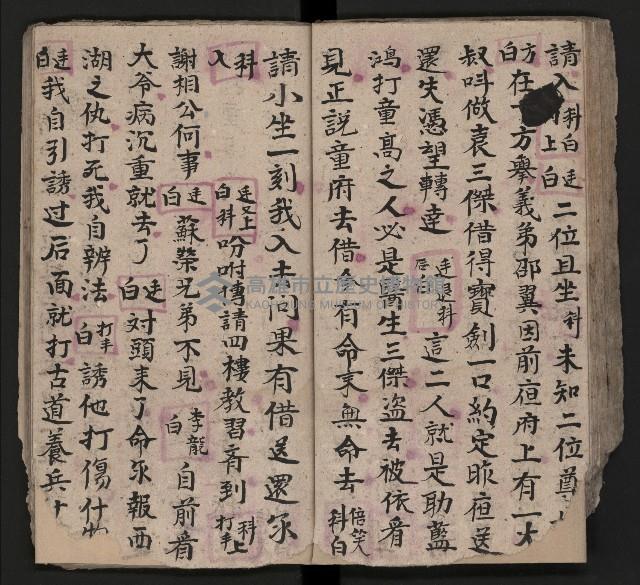 請入 科白 上 廷白 二位且坐 科 未知二位尊
方白 在下方舉義弟邵翼因前夜府上有一大
叔叫做袁三傑借得寶劍一口約定昨夜送
還失憑望轉達 廷見科 后 這二人就是助藍
鴻打童高之人必是喬生三傑盜去被依看
見正説童府去借今有命來無命去 倍笑 科白
請小坐一刻我入去问果有借送還尔
科入 廷又上 白科 吩咐傳請四樓教習斉到 科上 打手
謝相公何事 廷白 蘇榮兄弟不見 李龍白 自前看
大爷病沉重就去了 廷白 对頭来了命尔報西
湖之仇打死我自辦法 打手白 誘他打傷什
廷白 我自引誘过后面就打古道養兵
高雄市立歷史博物館
KAOHSIUNG MUSEUM OF HISTORY